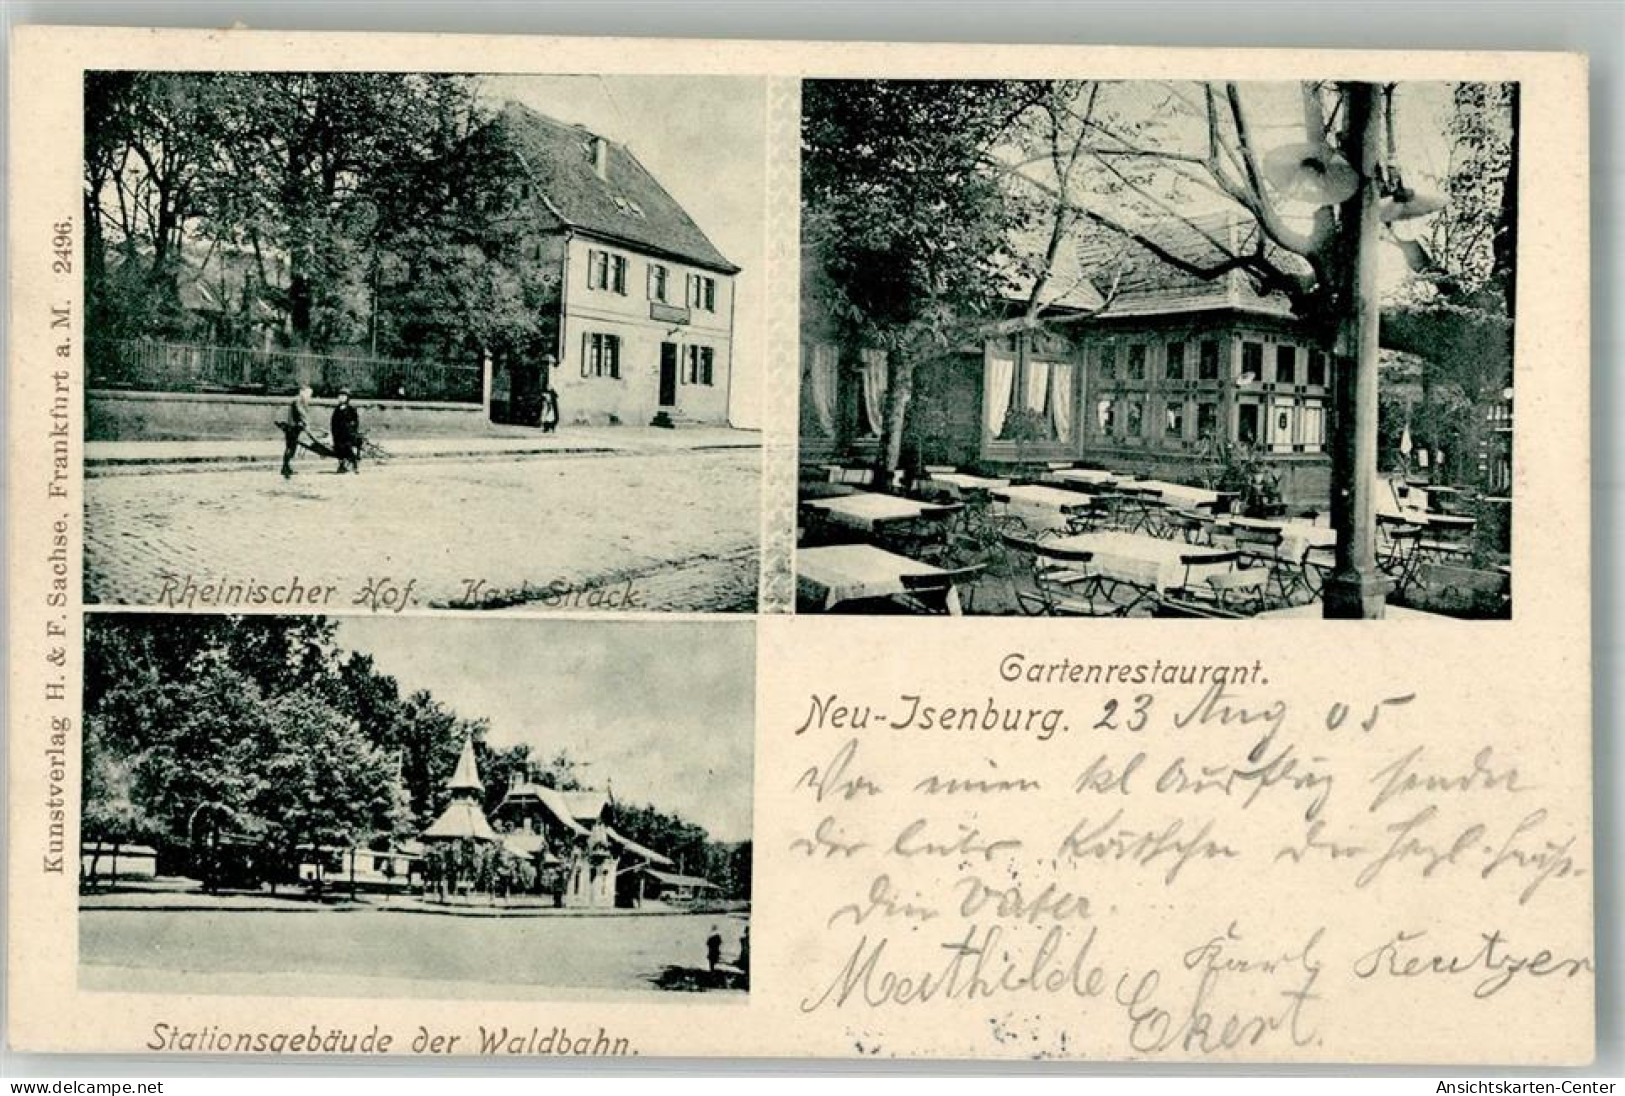 Kunstverlag H. & F. Sachse, Frankfurt a. M. 2496.
Rheinischer Hof. Karl Strack.
Gartenrestaurant.
Neu-Isenburg. 23 Aug 05
Von einem kl Ausflug sendet
die
Dein Vater.
Karl Kreutzer
Mathilde Ekert.
Stationsgebäude der Waldbahn.
delcampe.net
Ansichtskarten-Center